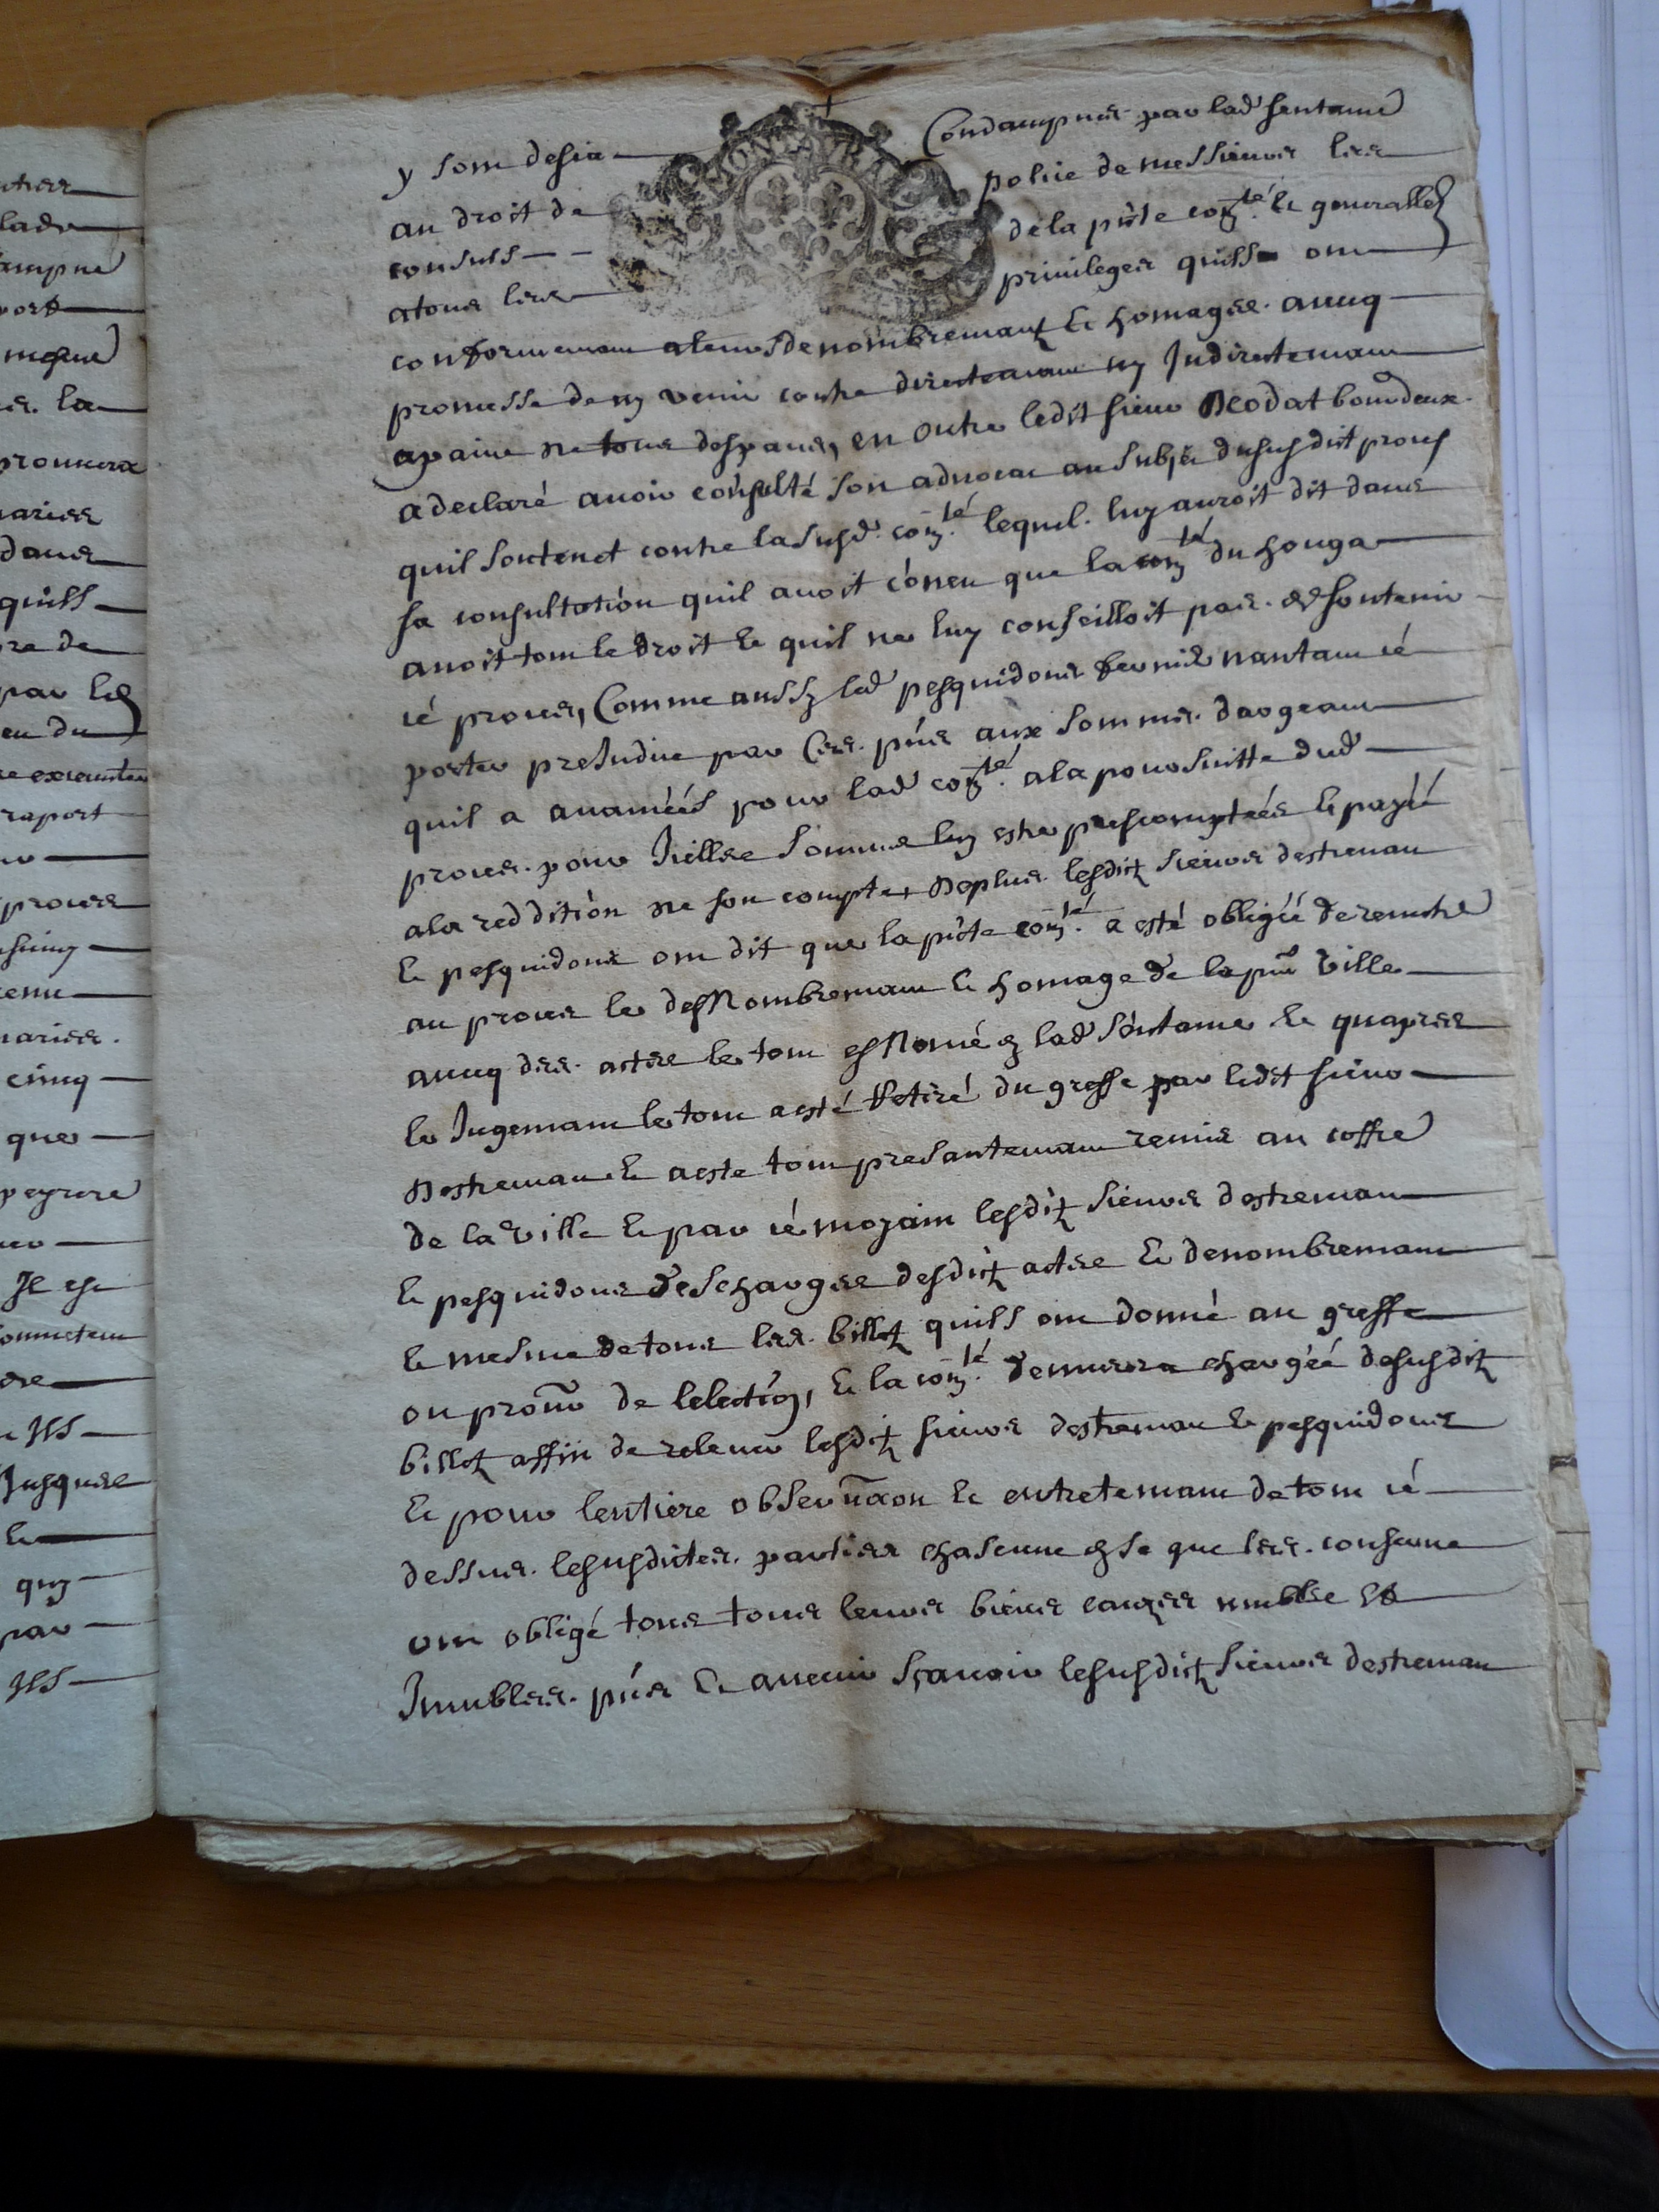 y sont desia Condampnés par lad sentance
au droit de police de messieurs les
consuls de la pnte comte et generallet
a tous les privileges quils ont
conformemant a leurs denombremant et homages. avecq
promesse de ny venir contre directemant ny Indirectemant
apaine de tous despans, en outre ledit sieur Deodat bourdeux
a declaré avoir consulté son advocat au subjet du susdict proces
quil soutenet contre la susd. comte lequel luy auroit dit dans
sa consultation quil avoit coneu que la comte du houga
avoit tout le droit et quil ne luy conseilloit pas de soutenir
cé proces, Comme aussy led pesquidous fermié nantant cé
porter presudice par Ces pntes aux sommes dargeant
quil a avancéés pour lad comte a la poursuitte dud
proces. pour Icelles sommes luy estre prescomptéés et payéé
a la reddition de son compte, Deplus lesdict sieurs destremau
et pesquidous ont dit que la pnte comte a esté obligéé de remetre
au proces le desnombremant et homage de la pnte ville
avecq des actes le tout esnoncé en lad sentance et quapres
le Jugemant le tout a esté retiré du greffe par ledit sieur
Destremau et a este tout presantemant remis au coffre
de la ville et par cé moyain lesdit sieurs destremau
et pesquidous deschargés desdict actes et denombremant
et mesme de tous les billet quils ont donné au greffe
ou procur de lelection, et la comte demurera chargéé desusdit
billet affin de relever lesdit sieurs destremau et pesquidous
et pour lentiere observaon et entretemant de tout cé
dessus. lesusdictes parties chascune en se que les conserne
ont obligé tous tous leurs biens causes mubles et
Inmubles. pnts et avenir sçavoir lesusdict sieurs destremau
utres
lade
ampné
port
mesme
es. la
prouvera
dans
quils
re de
par les
eu du
raport
proces
cinq
que
peyrere
Il est
Ils
Jusques
et
quy
par
Ils